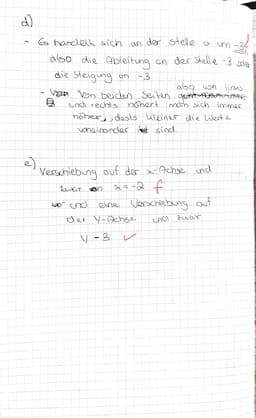 d)
- Es handelt sich an der Stelle a um -3
also die Ableitung an der Stelle -3
die Steigung an -3
- Von beiden Seiten also von links
und rechts nähert man sich immer
näher, desto kleiner die Werte
voneinander sind.
e) Verschiebung auf der x-Achse und
zwar x=-2 f
und eine Verschiebung auf
der Y-Achse und zwar
V-3 ✓